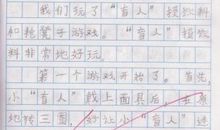 我们玩了“盲人”摸饮料
和抢凳子游戏。“盲人”摸饮
料非常地好玩。
第一个游戏开始了。首先
小“盲人”戴上面具后,
地转三圈,好让小“盲人”迷